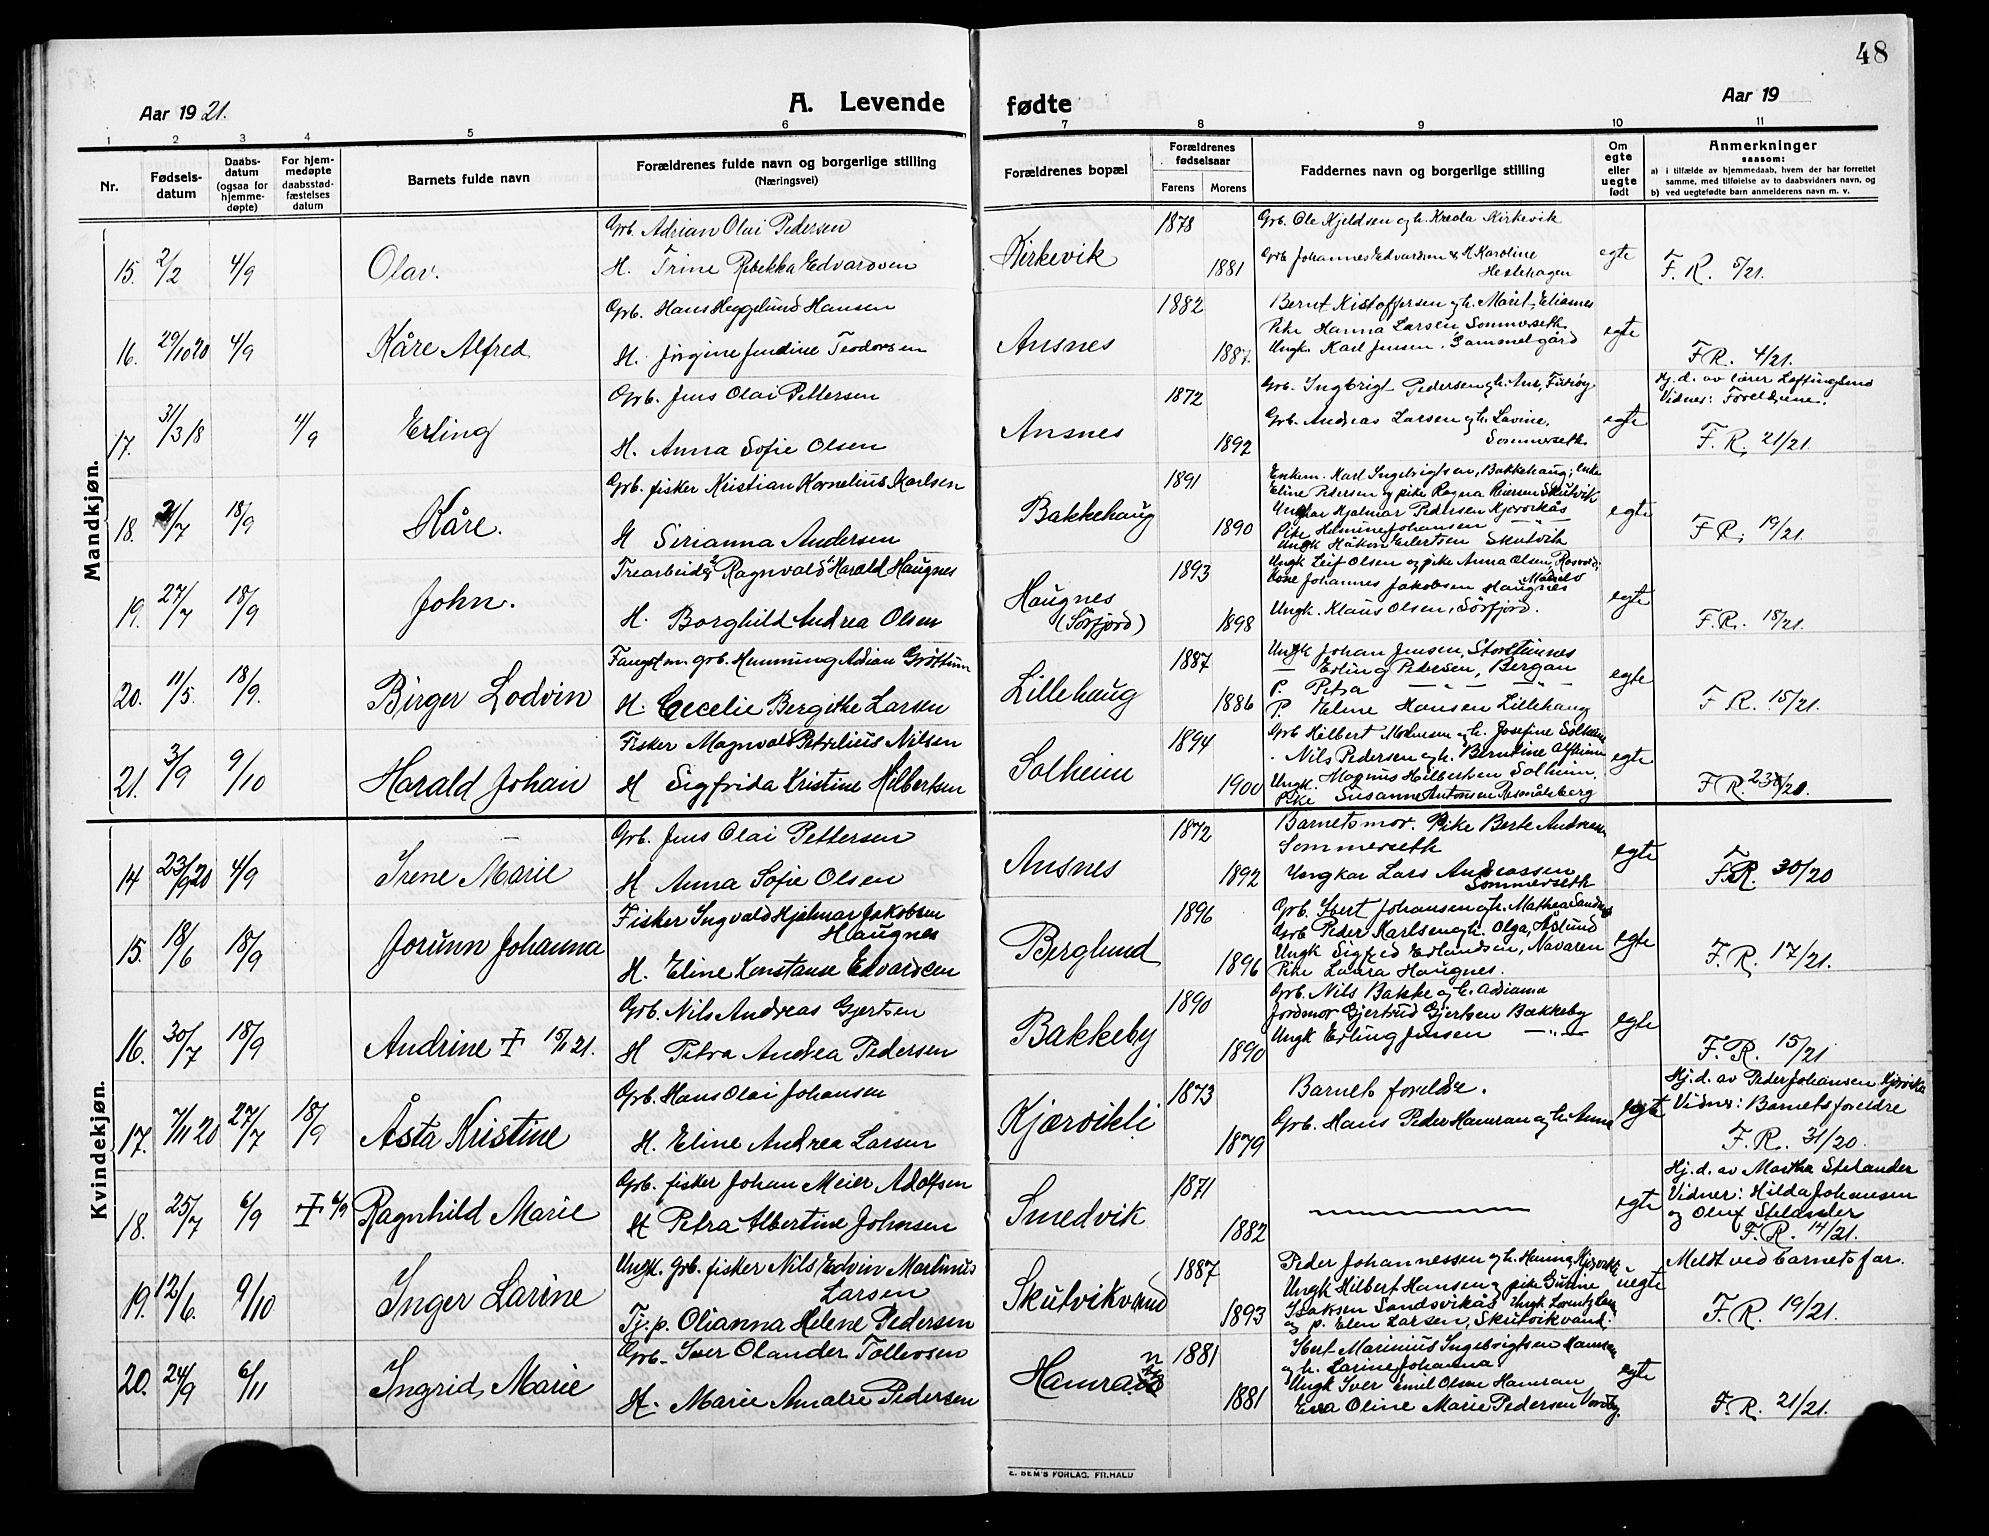 48
Aar 1921.
A. Levende fødte
Aar 19
1 2 3 4 5 6 7 8 9 10 11
Nr.
Fødsels-
datum
Daabs-
datum
(ogsaa for
hjemme-
døpte)
For hjem-
medøpte
daabsstad-
fæstelses
datum
Barnets fulde navn
Forældrenes fulde navn og borgerlige stilling
(Næringsvei)
Forældrenes bopæl
Forældrenes
fødselsaar
Farens Morens
Faddernes navn og borgerlige stilling
Om
egte
eller
uegte
født
Anmerkninger
saasom:
a) i tilfælde av hjemmedaab, hvem der har forrettet
samme, med tilføielse av to daabsvidners navn, og
b) ved uegtefødte barn anmelderens navn m. v.
Mandkjøn.
Grb. Adrian Olai Pedersen 1878 Grb. Ole Kjeldsen og h. Kreda Kirkevik
15. 2/2 4/9 Olav. H. Trine Rebekka Edvardsen Kirkevik 1881 Grb Johannes Edvardsen & H. Karoline Hestehagen egte F. R. 5/21.
Grb. Hans Heggelund Hansen 1882 Bernt Kristoffersen og h. Marit Eliasnes
16. 29/10 20 4/9 Kåre Alfred H. Jørgine Jendine Teodorsen Ansnes 1887. Pike Hanna Larsen Sommerseth egte
Ungk. Karl Jensen, Gammelgård F R. 4/21.
Grb. Jens Olai Pettersen 1872 Grb. Ingbrigt Pedersen og h. Ane, Hj. d. av lærer
Vidner: Foreldrene.
17. 31/3 18 4/9 Erling H. Anna Sofie Olsen Ansnes 1892 Grb. Andreas Larsen og h. Lovine, Sommerseth egte F. R. 21/21.
Grb. fisker Kristian Kornelius Karlsen 1891 Enkem. Karl Ingebrigtsen, Bakkehaug; enke
Eline Pedersen og pike Ragna Reiersen Skutvik
18. 2/7 18/9 Kåre. H Sirianna Andersen Bakkehaug 1890 Ungkar Hjalmar Pedersen Kjørvikås egte F R. 19/21.
Pike Helmine Johansen
Ungk Håkon Eilertsen Skutvik
Trearbeider Ragnvald Harald Haugnes 1893 Ungk Leif Olsen og pike Anna Olsen,
Johannes Jakobsen Haugnes
19. 27/7 18/9 John. H. Borghild Andrea Olsen Haugnes (Sørfjord) 1898 Ungk. Klaus Olsen, Sørfjord. egte F. R. 18/21.
Fangstm. grb. Henning Adrian Grøttum 1887 Ungk Johan Jensen, Storstinnes
— Erling Pedersen, Bergan
20. 11/5. 18/9. Birger Lodvin H. Cecelie Bergithe Larsen Lillehaug 1886 P. Petra — " — — " — egte F R. 15/21.
P. Elme Hansen Lillehaug
Fisker Magnvald Petrilius Nilsen 1894 Grb Hilbert og h. Josefine Solheim
. Nils Pedersen og h. Berntine
21. 3/9 9/10 Harald Johan H Sigfrida Kristine Hilbertsen Solheim 1900 Ungk. Magnus Hilbertsen Solheim. egte F R.
Pike Susanne Antonsen
Kvindekjøn.
Grb. Jens Olai Pettersen 1872 Barnets mor. Pike Berte Andreasen
Sommerseth
14 23/9 20 4/9 Irene Marie H Anna Sofie Olsen Ansnes 1892 Ungkar Lars Andreassen Sommerseth egte F.R. 30/20
Fisker Ingvald Hjalmar Jakobsen Haugnes 1896 Grb. Johansen og h. Mathea
Grb Peder Karlsen og h. Olga, Åslund
15. 18/6 18/9 Jorunn Johanna H. Eline Konstanse Edvardsen Berglund 1896 Ungk Sigfred Erlandsen, Navaren egte F. R. 17/21.
Pike Laura Haugnes.
Grb. Nils Andreas Gjertsen 1890 Grb. Nils Bakke og h. Adriana
Jordmor Gjertrud Gjertsen Bakkeby
16. 30/7 18/9 Andrine † 15/11 21. H Petra Andrea Pedersen Bakkeby 1890 Ungk Erling Jensen — " — egte F. R. 15/21
Grb. Hans Olai Johansen 1873 Barnets foreldre. Hj. d. av Peder Johansen Kjørvik
Vidner: Barnets foreldre
17. 7/11 20 27/7 18/9 Åsta Kristine H. Eline Andrea Larsen Kjærvikli 1879 Grb. Hans Peder Hamran og h. Anna egte F. R. 31/20.
Grb. fisker Johan Meier Adolfsen 1871 Hj. d. av Martha Stelander
Vidner: Hilda Johansen
og Oluf Stelander
18. 25/7 6/9 † 6/9 Ragnhild Marie H Petra Albertine Johnsen Smedvik 1882 — egte F. R. 14/21.
Ungk. Grb. fisker Nils Edvin Martinus Larsen 1887 Peder Johannessen og h. Hanna Kjørvik Meldt ved barnets far.
Ungk Hilbert Hansen og pike Gurine
19. 12/6. 9/10 Inger Larine Tj. p. Olianna Helene Pedersen Skutvikvand 1893 Isaksen Sandsvikås Ungk Lorentz uegte F. R. 19/21.
og p. Elen Larsen, Skutvikvand.
Grb. Iver Olander Tollevsen 1881 Marinius Ingebrigtsen
og h. Larine Johanna
20. 24/9 6/11 Ingrid Marie H. Marie Amalie Pedersen Hamran 1881 Ungk Iver Emil Olsen Hamran egte F. R. 21/21.
Oline Marie Pedersen
E. SEM'S FORLAG. FR.HALD